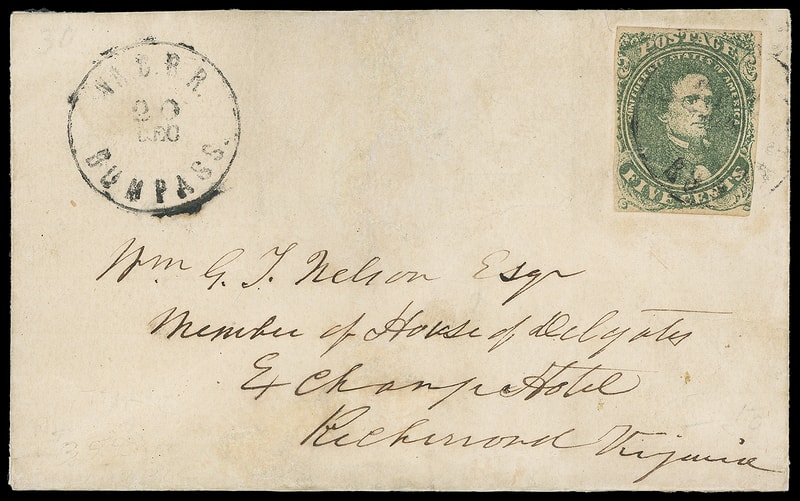 30
Va. C. R. R.
20
DEC
BUMPASS.
POSTAGE
CONFEDERATE STATES OF AMERICA
FIVE CENTS
Wm G. T. Nelson Esqr
Member of House of Delegates
Exchange Hotel
Richmond Virginia